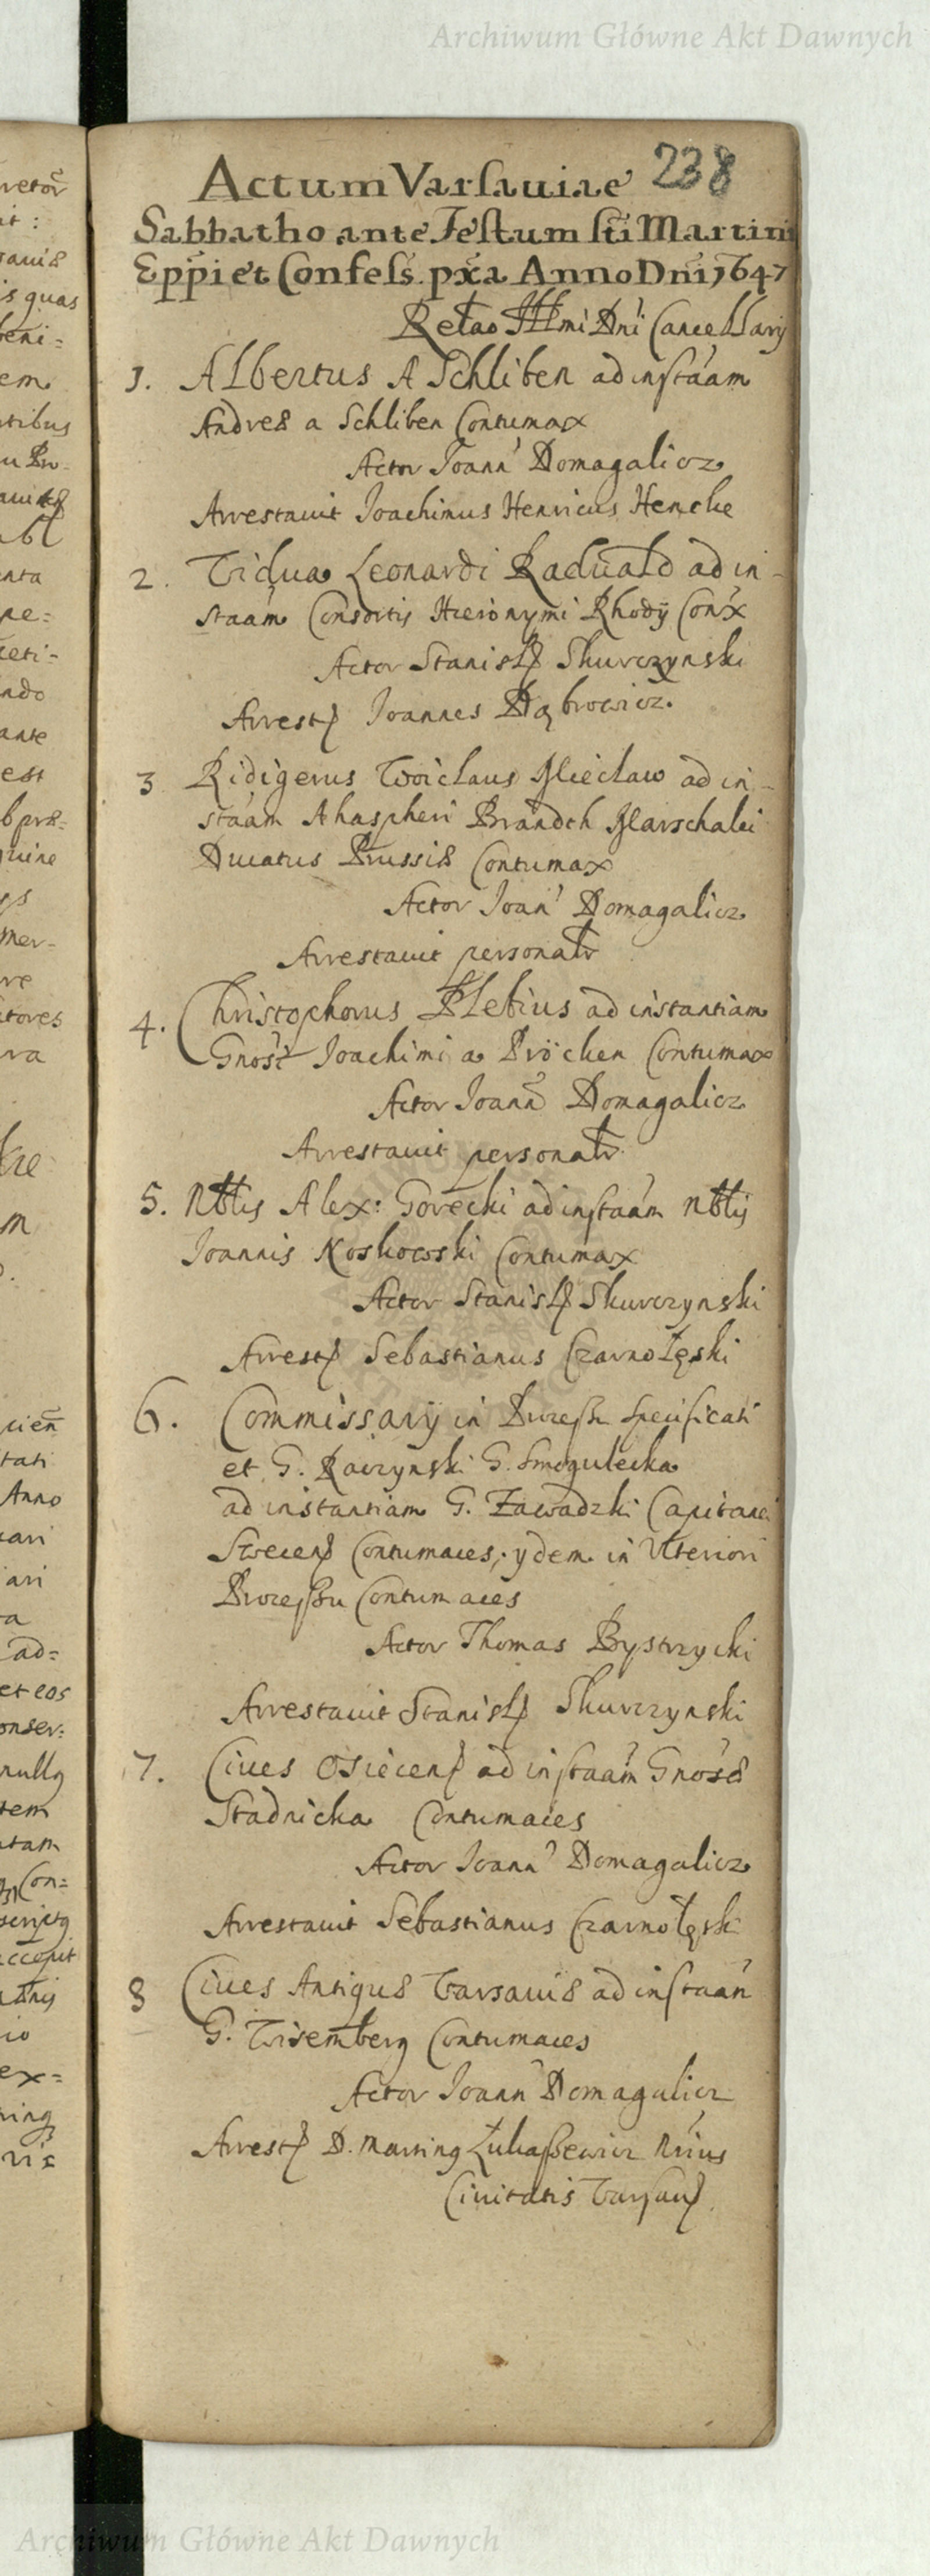 Archiwum Główne Akt Dawnych
238
Actum Varsauiae
Sabbatho ante Festum sti Martini
Eppi et Confess. pxa Anno Dni 1647
Relao Illmi Dni Cancellarÿ
1. Albertus A Schliben ad instãam
Andreæ a Schliben Contumax
Actor Joann' Domagalicz
Arrestauit Joachimus Henricus Henche
2. Vidua Leonardi Raduald ad in-
staãm Consortis Hieronymi Rhodÿ Con'x
Actor Stanisl Skurczynski
Arrest Joannes Dąbrowicz.
3 Ridigerus ad in-
staãm Ahaspheri Brandth Marschalci
Ducatus Prussiæ Contumax
Actor Joan' Domagalicz
Arrestauit personalr
4. Christophorus Plebius ad instantiam
Gnosi Joachimi a Pröcken Contumax
Actor Joann Domagalicz
Arrestauit personalr
5. Nblis Alex: Gorecki ad instaãm Nblis
Joannis Koskowski Contumax
Actor Stanisl Skurczynski
Arrest Sebastianus Czarnołęski
6. Commissarÿ in Processu specificati
et G. Raczynski G. Smogulecka
ad instantiam G. Zawadzki Capitanei
Swecen Contumaces, ÿdem in Ulteriori
Processu Contumaces
Actor Thomas Bystrzycki
Arrestauit Stanisl Skurczynski
7. Ciues Osiecen ad instaãm Gnosæ
Stadnicka Contumaces
Actor Joann' Domagalicz
Arrestauit Sebastianus Czarnołęski
8 Ciues Antiquæ Varsauiæ ad instaãm
G. Wisemberg Contumaces
Actor Joann Domagalicz
Arrest D. Martinq Łukassewicz Nrius
Ciuitatis Varsau
Archiwum Główne Akt Dawnych